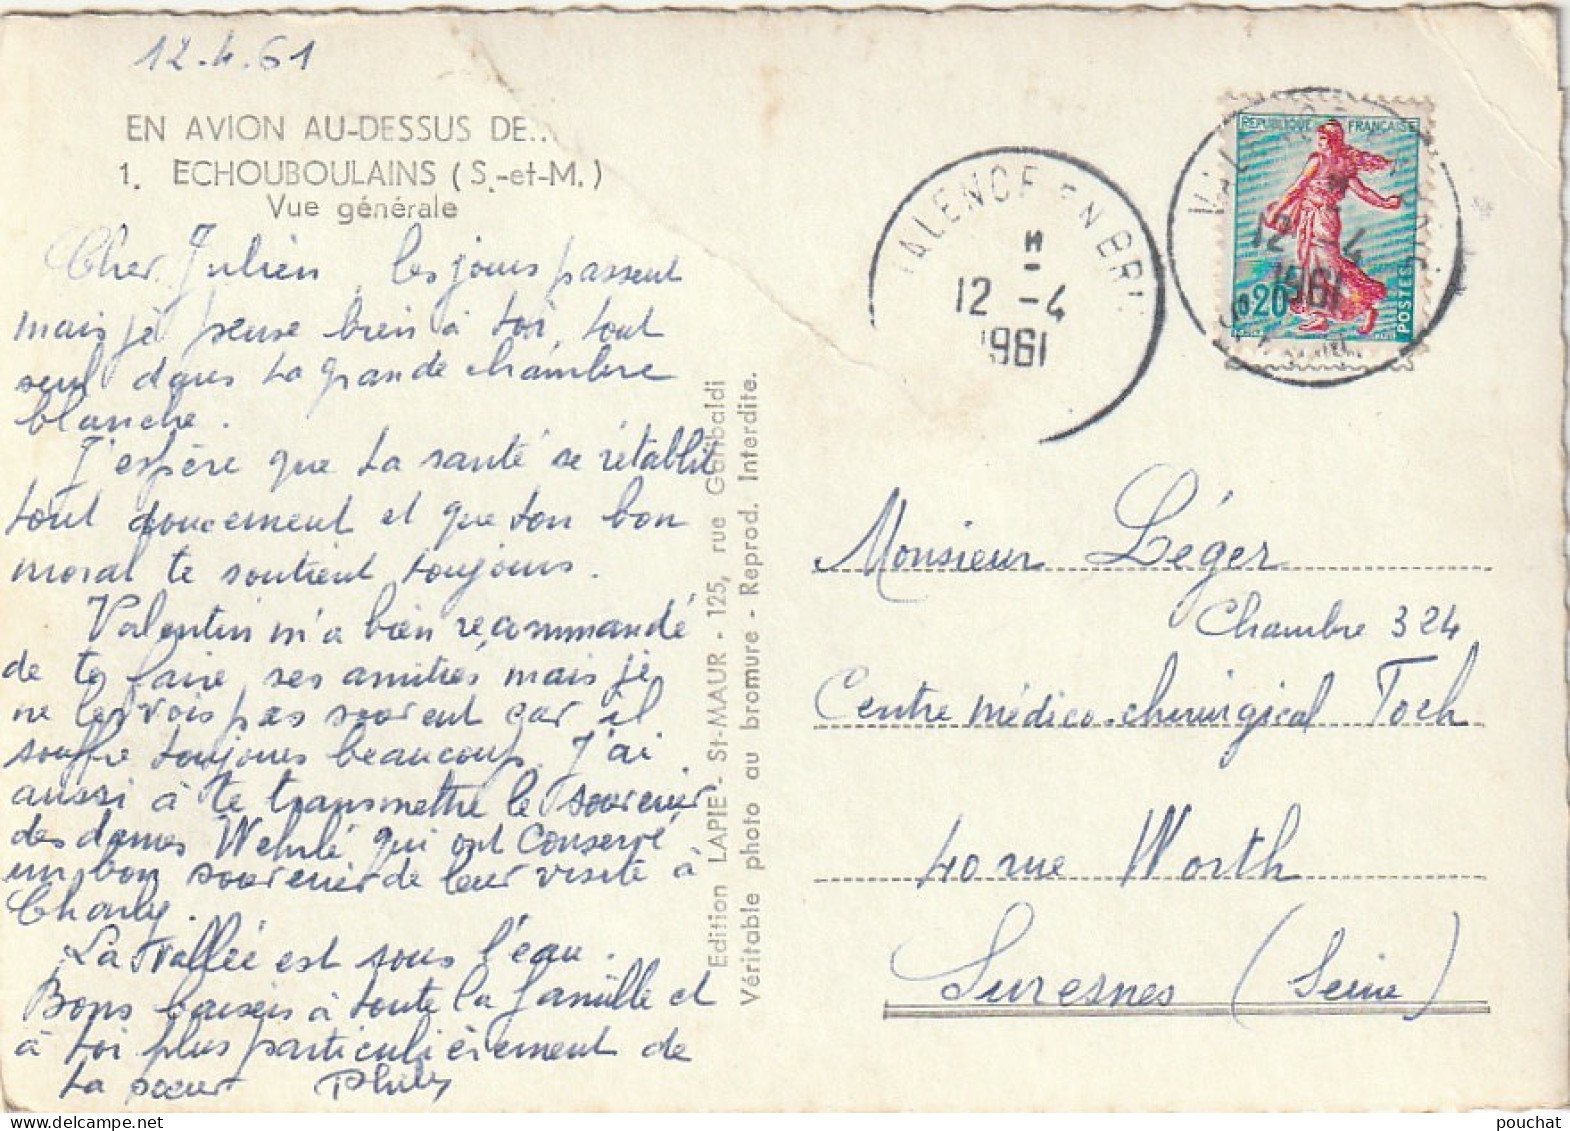 12.4.61
EN AVION AU-DESSUS DE...
1. ECHOUBOULAINS (S.-et-M.)
Vue générale
Cher Julien, les jours passent
mais je pense bien à toi, tout
seul dans ta grande chambre
blanche.
J'espère que ta santé se rétablit
tout doucement et que ton bon
moral te soutient toujours.
Valentin m'a bien recommandé
de te faire ses amitiés, mais je
ne les vois pas souvent car il
souffre toujours beaucoup. J'ai
aussi à te transmettre le souvenir
des dames Wehrlé qui ont conservé
un bon souvenir de leur visite à
Charly.
La vallée est sous l'eau.
Bons baisers à toute la famille et
à toi plus particulièrement de
ta sœur
Edition LAPIE - St-MAUR - 125, rue Garibaldi
Véritable photo au bromure - Reprod. Interdite.
VALENCE EN BRIE
12 -4
1961
REPUBLIQUE FRANÇAISE
0,20
POSTES
12 -4
1961
Monsieur Léger
Chambre 324
Centre médico-chirurgical Foch
40 rue Worth
Suresnes (Seine)
pouchat